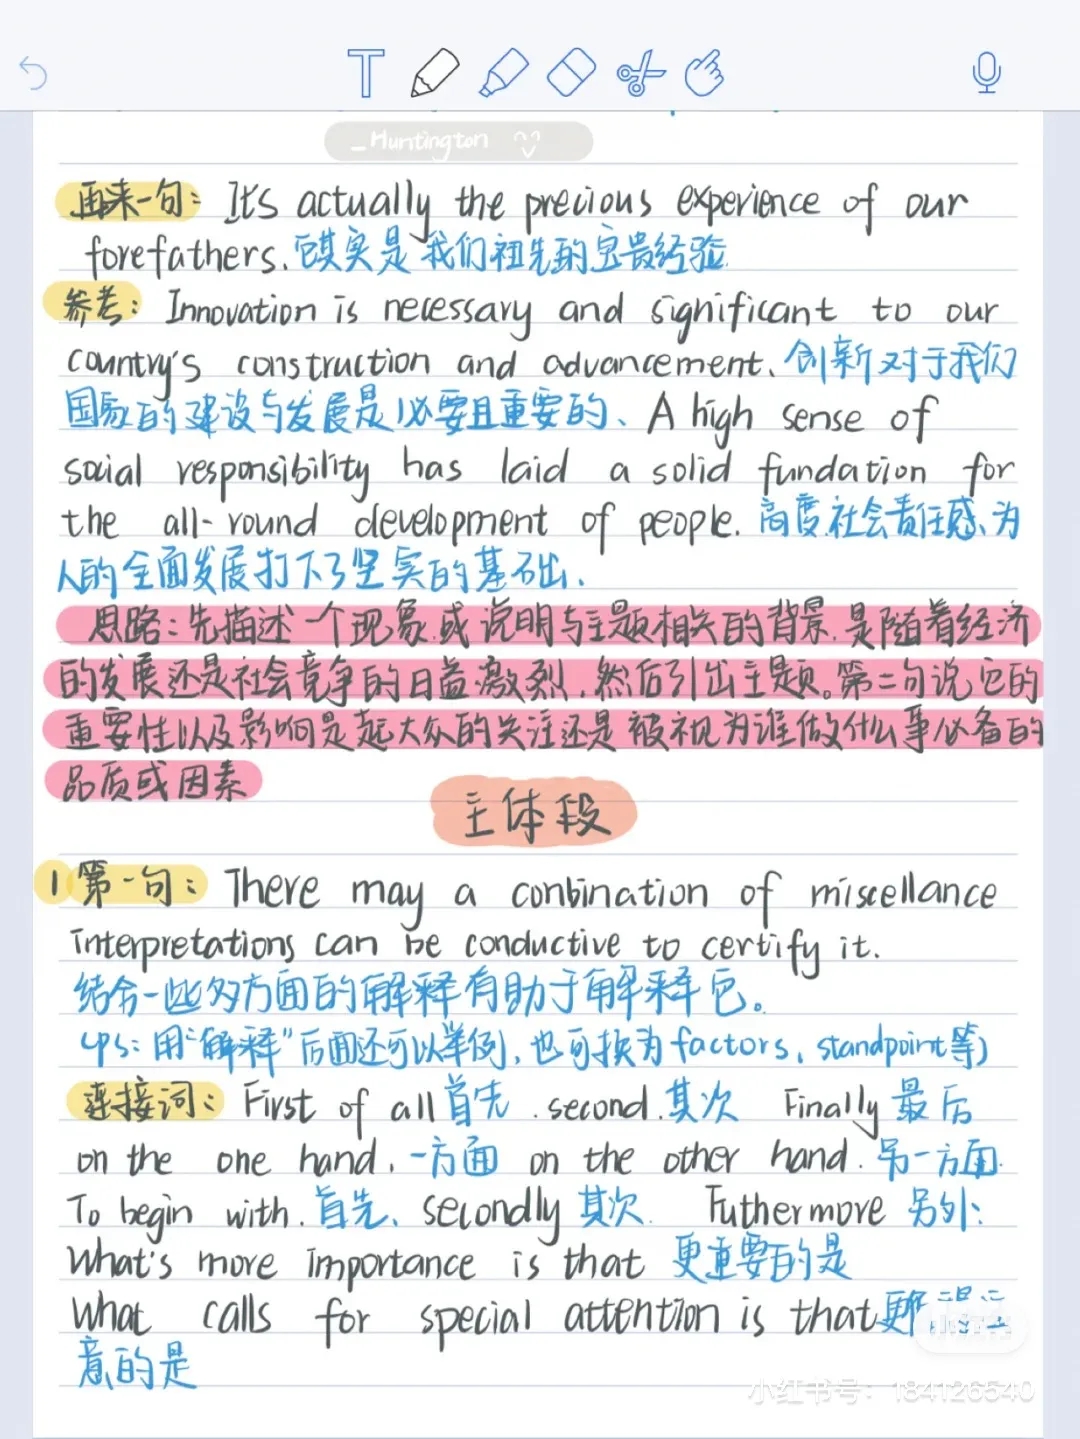 T
_Huntington
再来一句: It's actually the precious experience of our
forefathers. 它其实是我们祖先的宝贵经验.
参考: Innovation is necessary and significant to our
country's construction and advancement. 创新对于我们
国家的建设与发展是必要且重要的、A high sense of
social responsibility has laid a solid fundation for
the all-round development of people. 高度社会责任感、为
人的全面发展打下了坚实的基础.
思路:先描述一个现象.或说明与主题相关的背景.是随着经济
的发展还是社会竞争的日益激烈.然后引出主题。第二句说它的
重要性以及影响是起大众的关注还是被视为谁做什么事必备的
品质或因素
主体段
1 第一句: There may a conbination of miscellance
interpretations can be conductive to certify it.
结合一些多方面的解释有助于解释它。
(ps: 用"解释"后面还可以举例,也可换为factors, standpoint等)
连接词: First of all 首先 .second.其次 Finally 最后
on the one hand. 一方面 on the other hand. 另一方面.
To begin with. 首先、secondly 其次. Futhermore 另外:
What's more importance is that 更重要的是
What calls for special attention is that
意的是
小红书
小红书号: 184126540